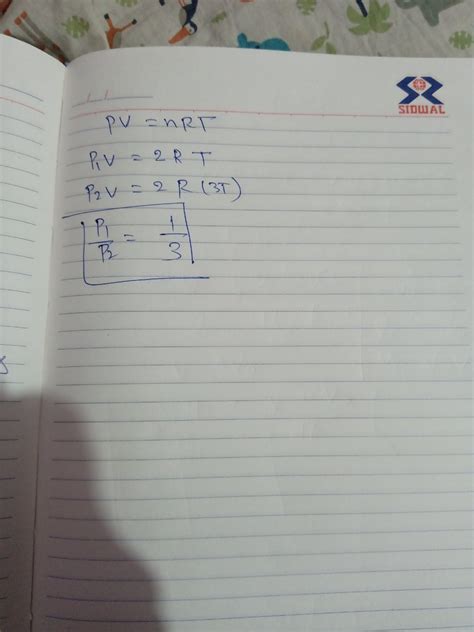 SIDWAL
PV = nRT
P₁V = 2RT
P₂V = 2R(3T)
P₁/P₂ = 1/3